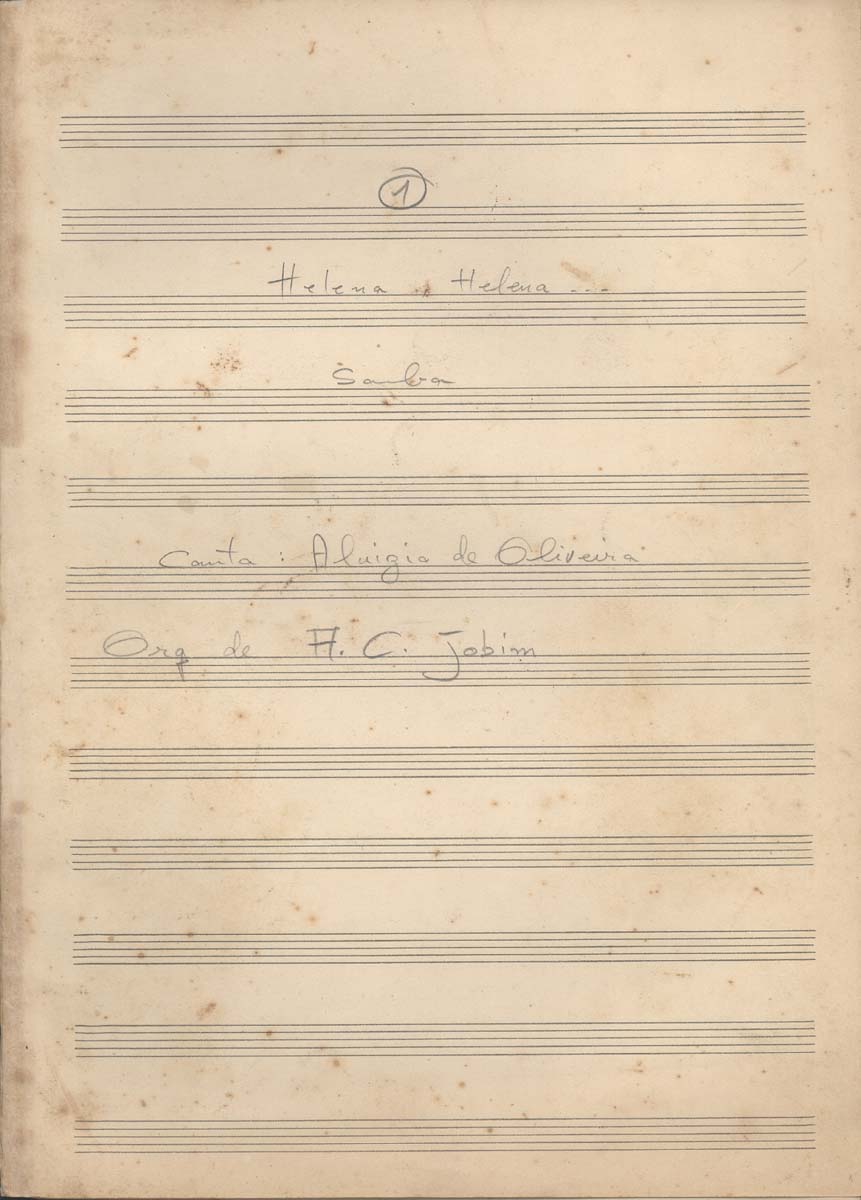 1
Helena ... Helena ...
Samba
Canta : Aluizio de Oliveira
Orq de A. C. Jobim